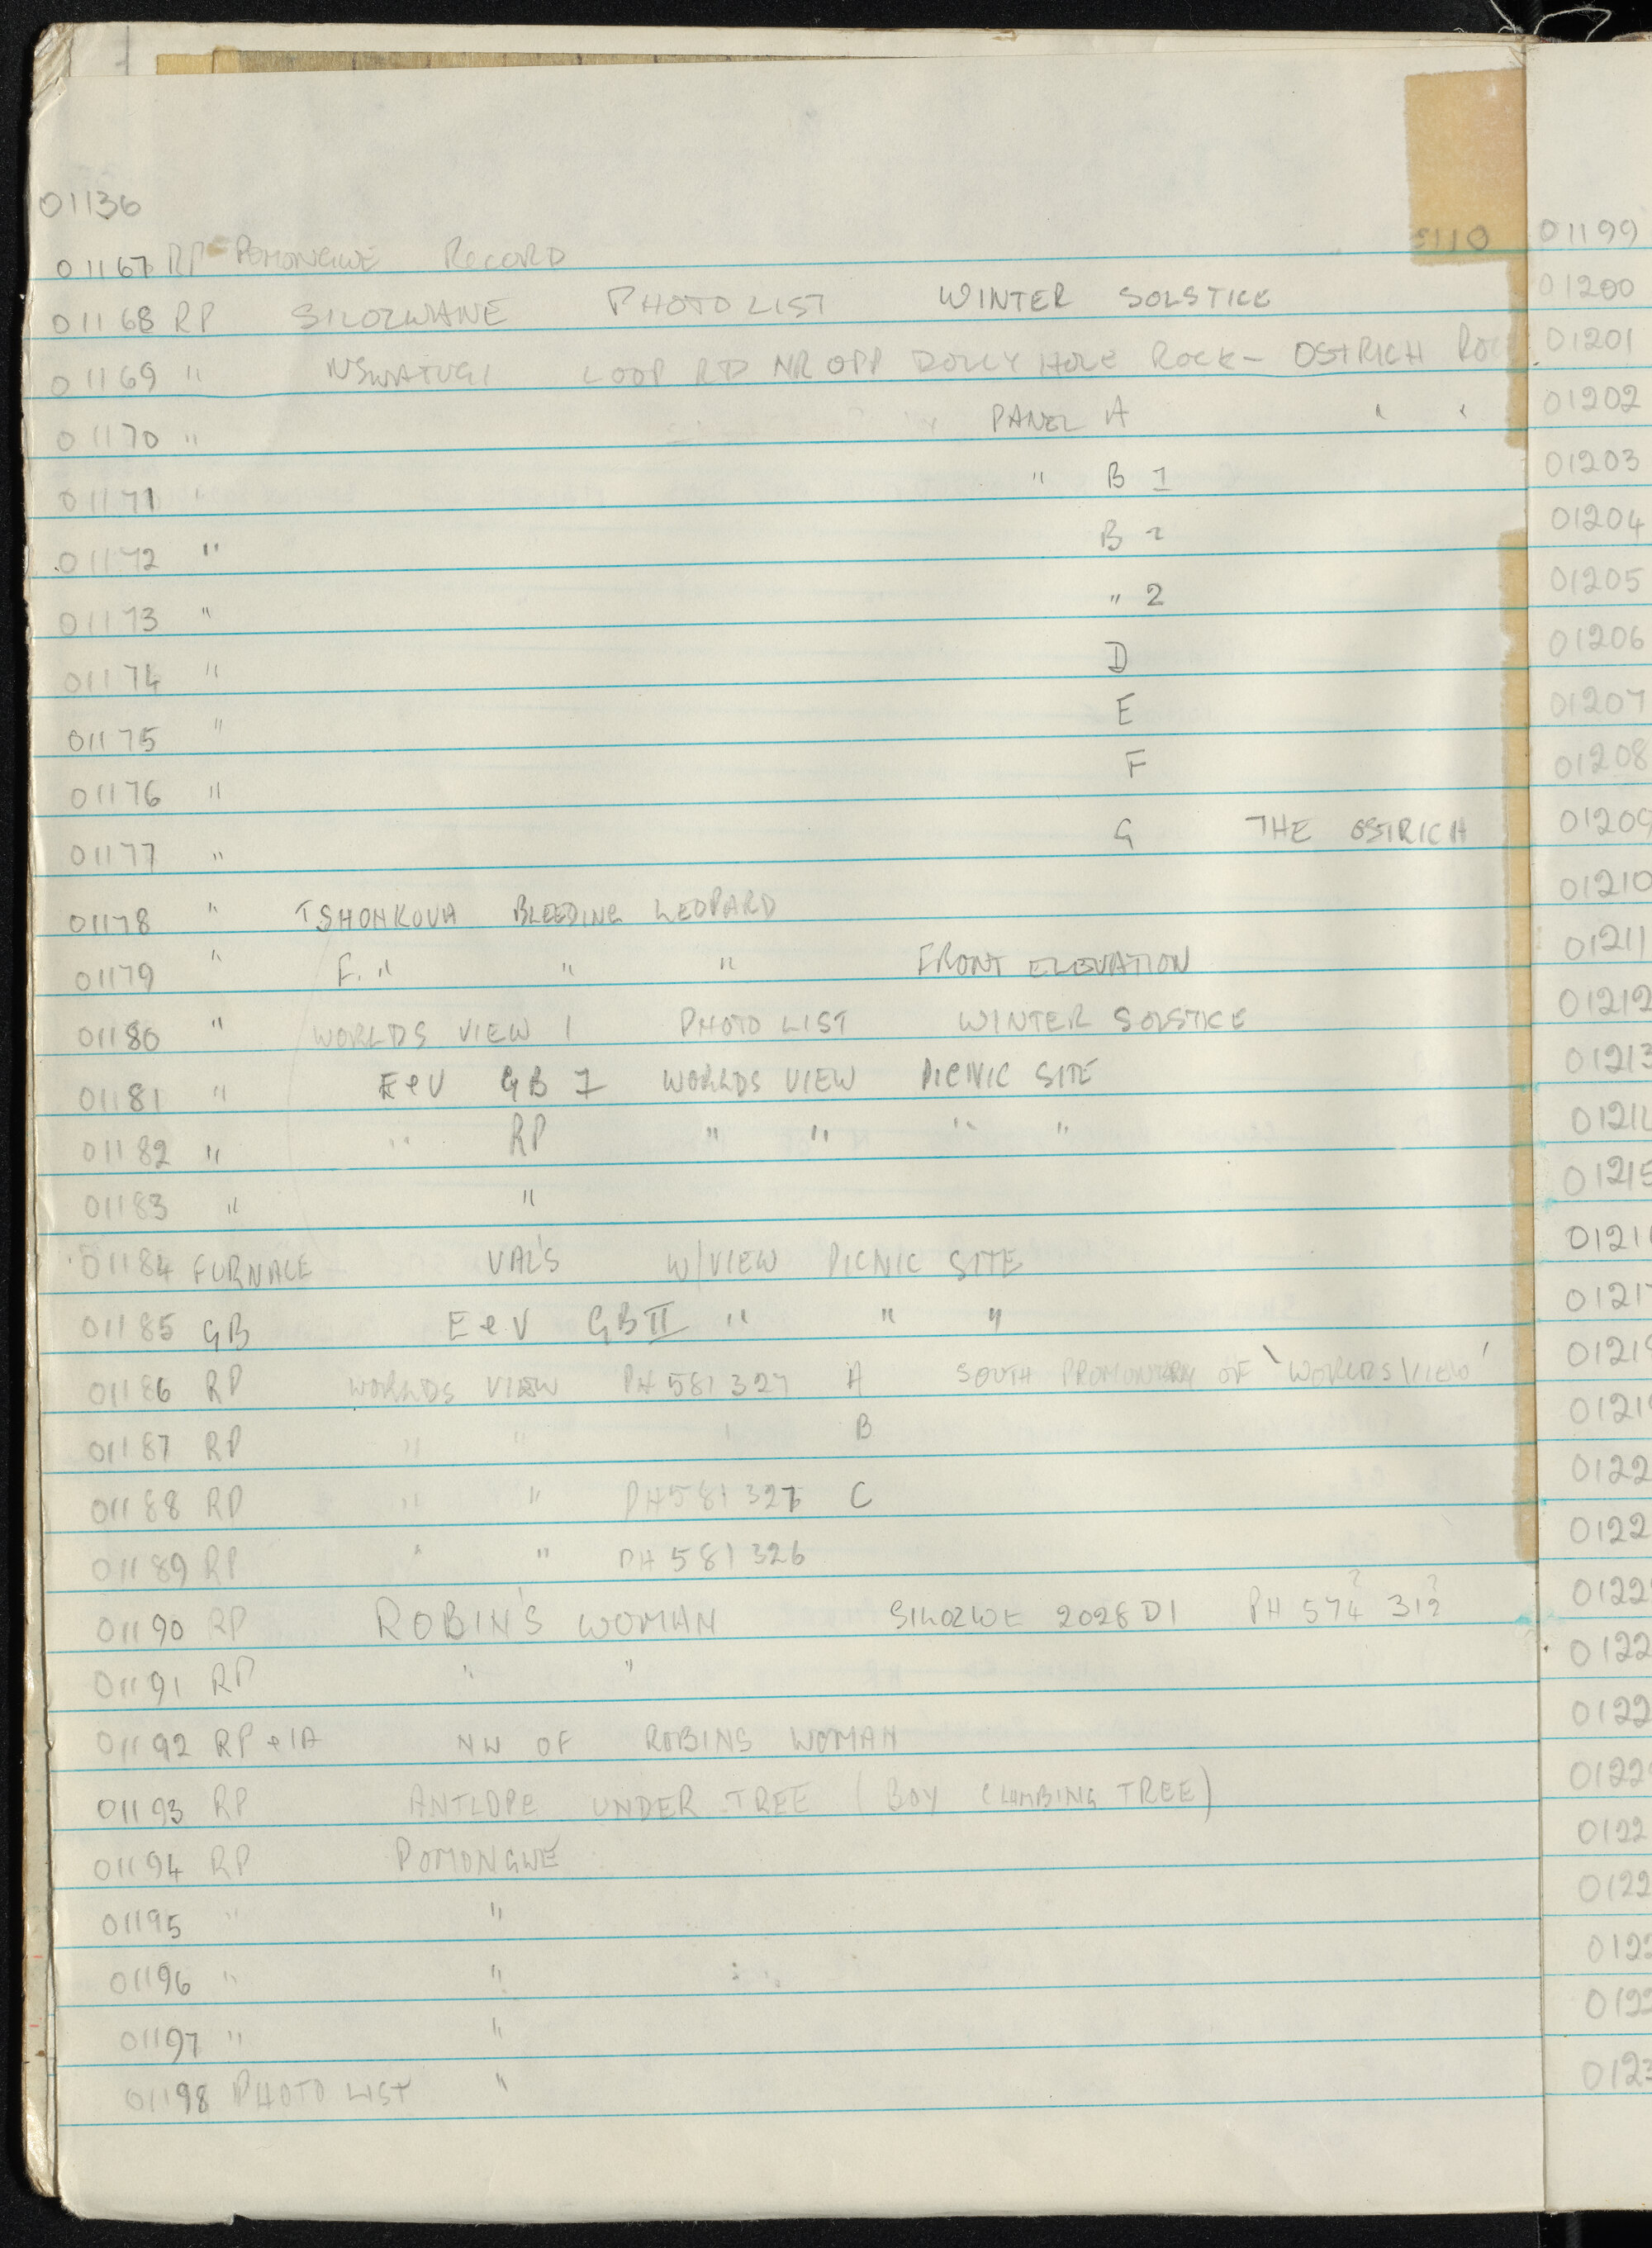 01136
01167 RP POMONGWE RECORD
01168 RP SILOZWANE PHOTO LIST WINTER SOLSTICE
01169 " NSWATUGI LOOP RD NR OPP DOLLY HOLE ROCK - OSTRICH
01170 " PANEL A " "
01171 " " B 1
01172 " B 2
01173 " " 2
01174 " D
01175 " E
01176 " F
01177 " G THE OSTRICH
01178 " BLEEDING LEOPARD
01179 " F. " " " FRONT ELEVATION
01180 " WORLDS VIEW 1 PHOTO LIST WINTER SOLSTICE
01181 " E & V GB I WORLDS VIEW PICINIC SITE
01182 " " RP " " " "
01183 " "
01184 FURNACE VAL'S W/VIEW PICNIC SITE
01185 GB E & V GB II " " "
01186 RP WORLDS VIEW PH 581 327 A SOUTH PROMONTORY OF 'WORLDS VIEW'
01187 RP " " " B
01188 RP " " PH 581 327 C
01189 RP " " PH 581 326
01190 RP ROBIN'S WOMAN SILOZWE 2028 D1 PH 574? 312?
01191 RP " "
01192 RP & IA NW OF ROBINS WOMAN
01193 RP ANTLOPE UNDER TREE (BOY CLIMBING TREE)
01194 RP POMONGWE
01195 " "
01196 " "
01197 " "
01198 PHOTO LIST "
01199
01200
01201
01202
01203
01204
01205
01206
01207
01208
01209
01210
01211
01212
01213
0121
01215
0121
0121
0121
0121
0122
0122
0122
0122
0122
0122
0122
0122
0122
0122
0123